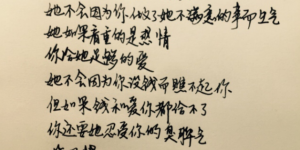 她不会因为你做了她不满意的事而生气
她如果看重的是感情
你给她足够的爱
她不会因为你没钱而瞧不起你
但如果钱和爱你都给不了
你还要她忍受你的臭脾气